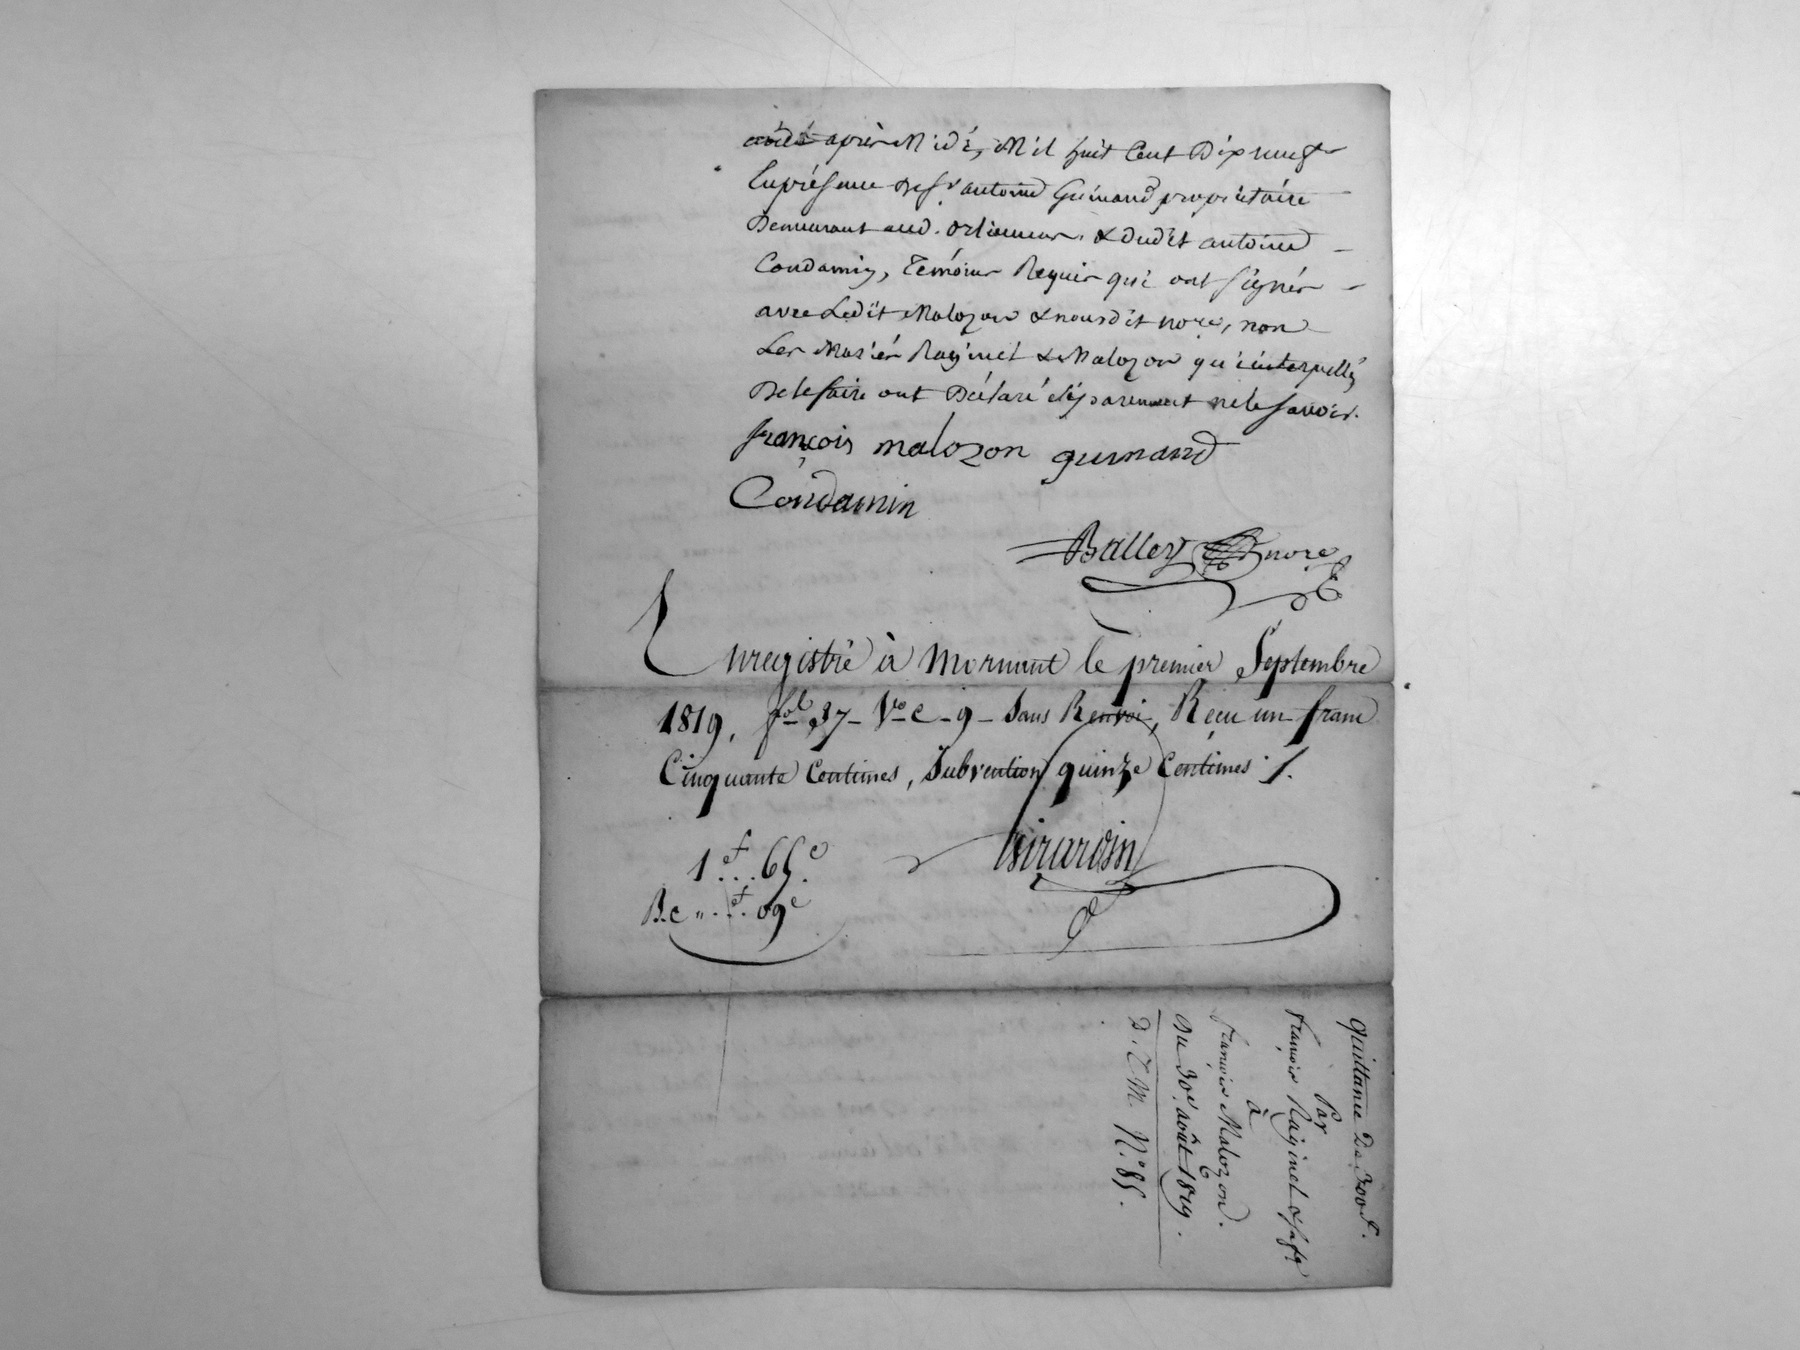 après Midi, Mil huit Cent Dixneuf
En présence de Sr antoine Guinand propriétaire
Demeurant aud. orlienas, & dudit antoine
Condamin, Témoins Requis qui ont signés
avec Ledit Malozon & nousdit nore, non
Les Mariés Raginel & Malozon qui interpellés
De le faire ont Déclaré séparement ne le savoir.
françois malozon guinand
Condamin
Balley nore
Enregistré à Mornant le premier Septembre
1819, fol 37 - Vo C - 9 - Sans Renvoi, Reçu un franc
Cinquante Centimes, Subvention quinze Centimes /.
1 f... 65 c
Girardin
B.c „ ... f 09 c
Quittance De 300 f.
Par
françois Raginel & sa fe
à
françois Malozon.
Du 30e août 1819.
D. T. M. No. 85.